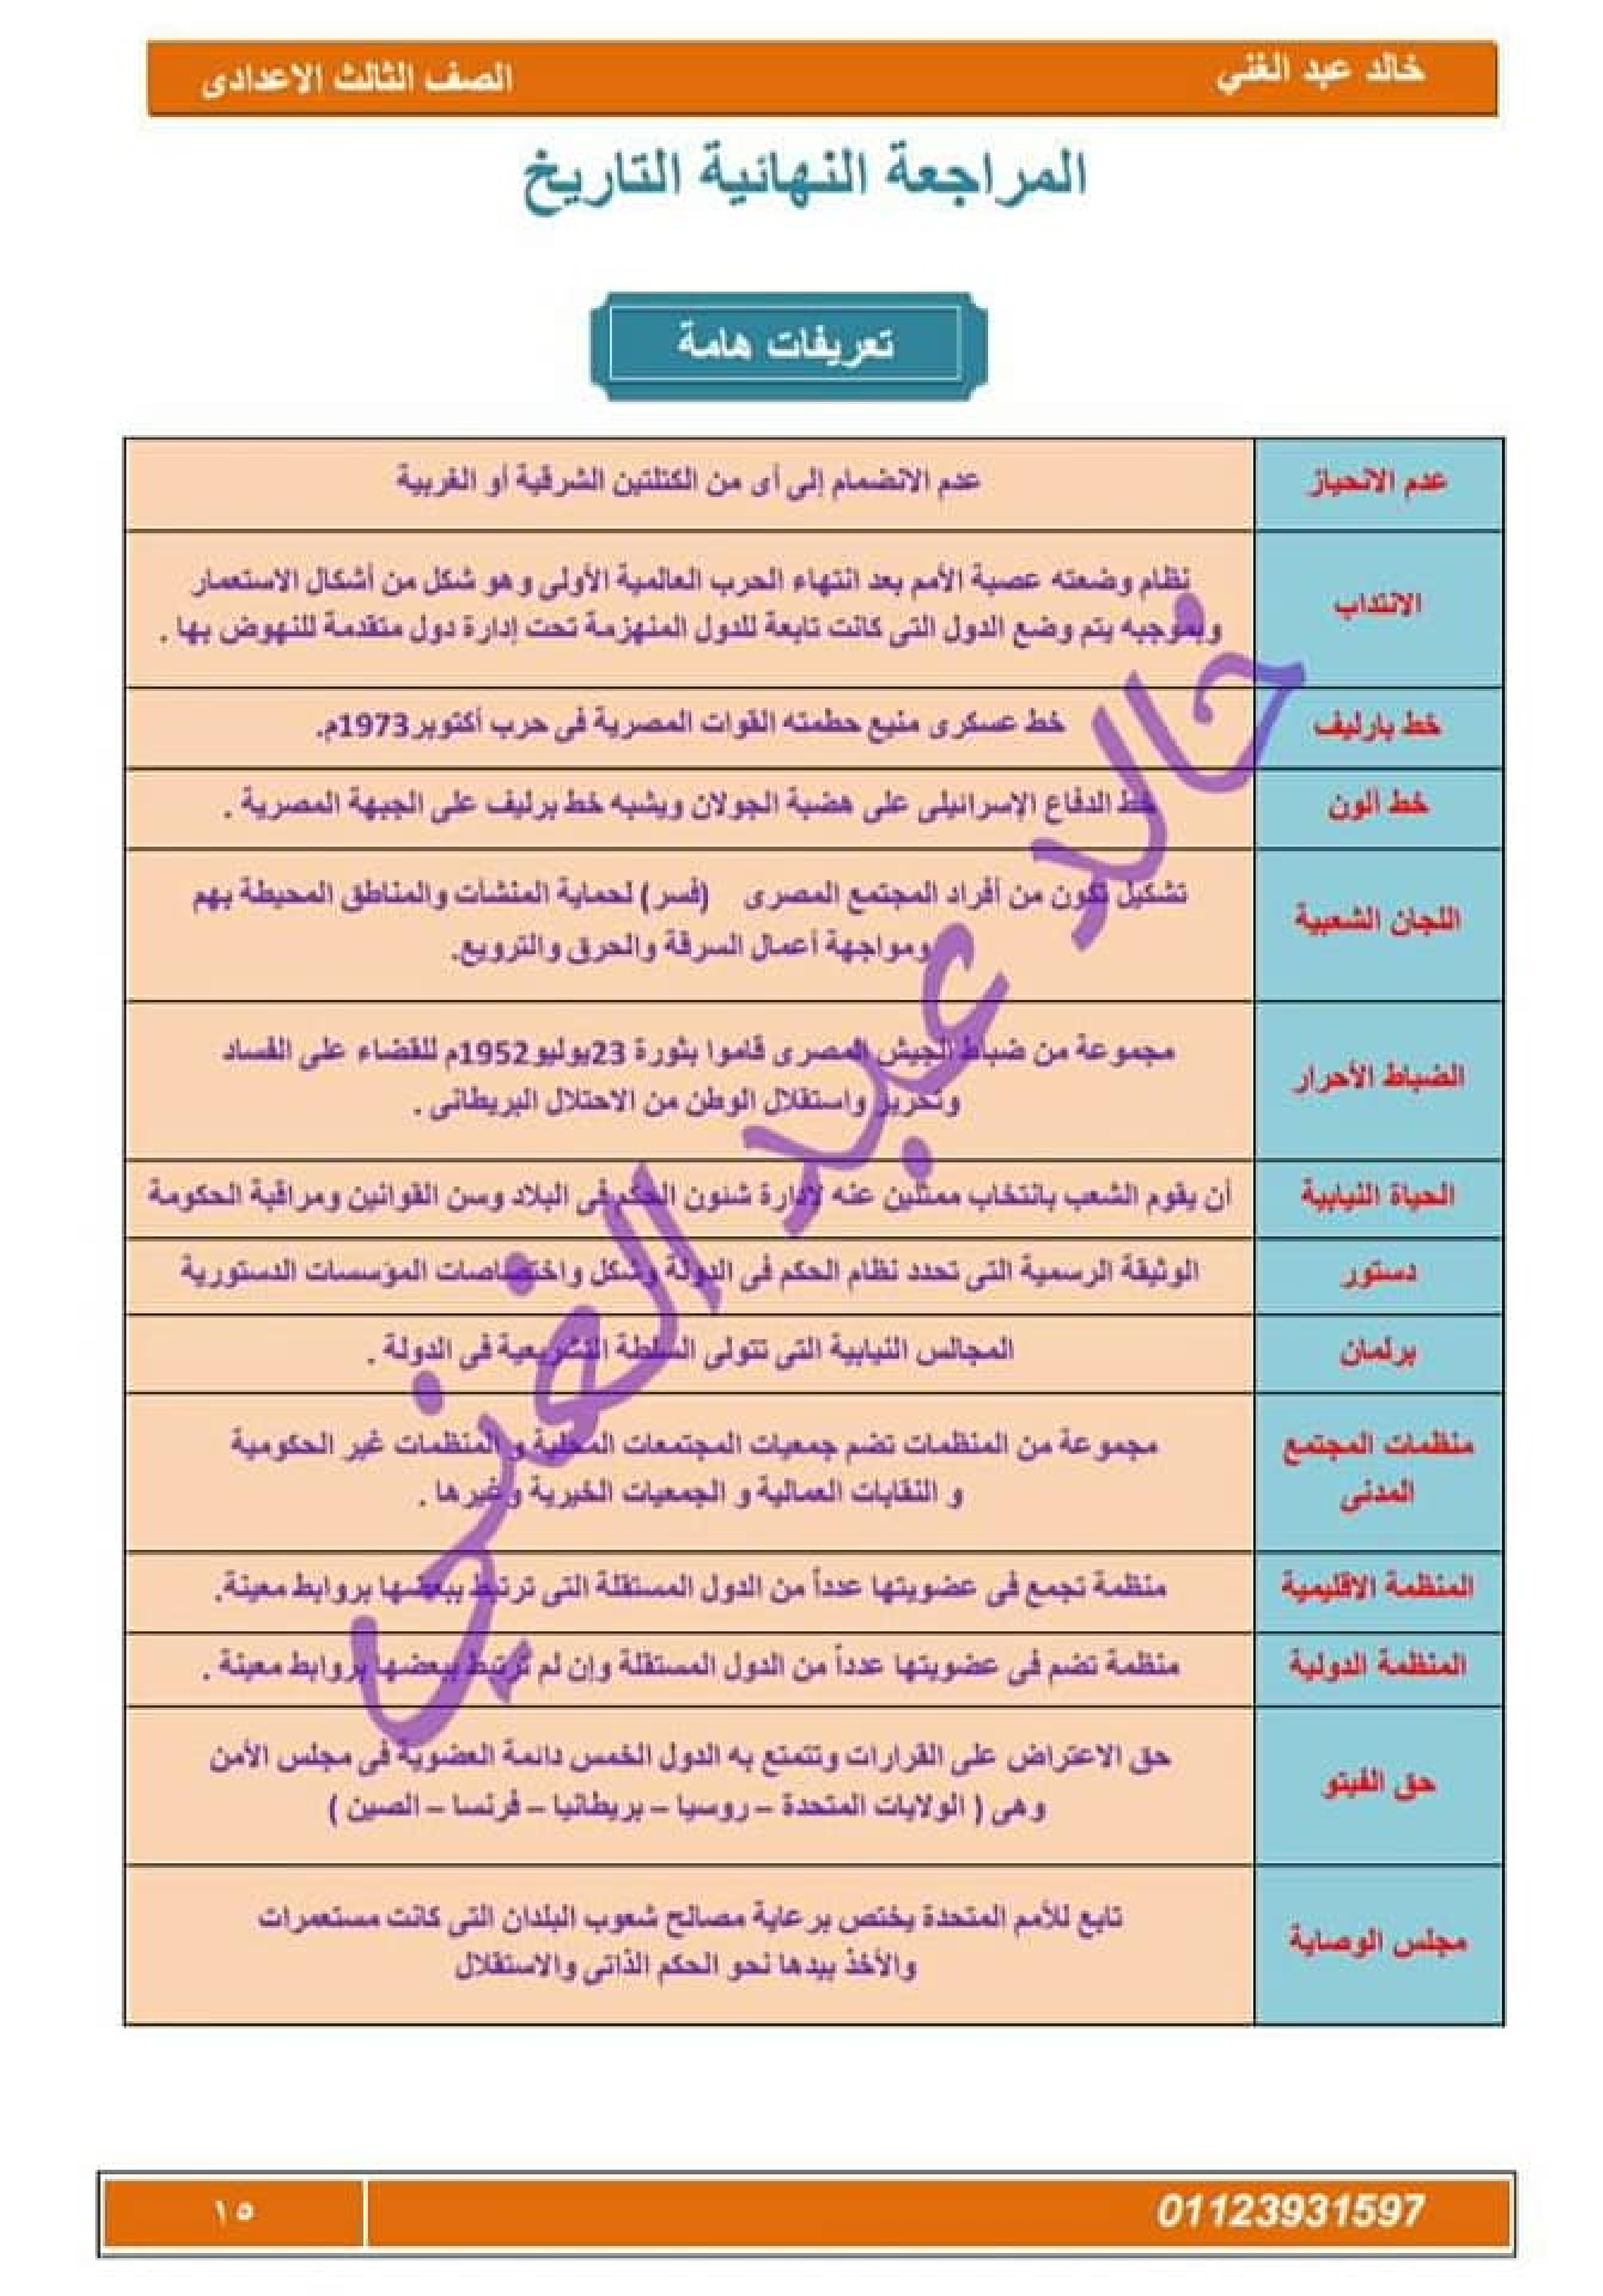 خالد عبد الغني
الصف الثالث الاعدادى
المراجعة النهائية التاريخ
تعريفات هامة
عدم الانحياز
عدم الانضمام إلى أى من الكتلتين الشرقية أو الغربية
الانتداب
نظام وضعته عصبة الأمم بعد انتهاء الحرب العالمية الأولى وهو شكل من أشكال الاستعمار
وبموجبه يتم وضع الدول التى كانت تابعة للدول المنهزمة تحت إدارة دول متقدمة للنهوض بها .
خط بارليف
خط عسكرى منيع حطمته القوات المصرية فى حرب أكتوبر1973م.
خط ألون
خط الدفاع الإسرائيلى على هضبة الجولان ويشبه خط برليف على الجبهة المصرية .
اللجان الشعبية
تشكيل تكون من أفراد المجتمع المصرى (فسر) لحماية المنشآت والمناطق المحيطة بهم
ومواجهة أعمال السرقة والحرق والترويع.
الضباط الأحرار
مجموعة من ضباط الجيش المصرى قاموا بثورة 23يوليو1952م للقضاء على الفساد
وتحرير واستقلال الوطن من الاحتلال البريطانى .
الحياة النيابية
أن يقوم الشعب بانتخاب ممثلين عنه لإدارة شئون الحكم فى البلاد وسن القوانين ومراقبة الحكومة
دستور
الوثيقة الرسمية التى تحدد نظام الحكم فى الدولة وشكل واختصاصات المؤسسات الدستورية
برلمان
المجالس النيابية التى تتولى السلطة التشريعية فى الدولة .
منظمات المجتمع
المدنى
مجموعة من المنظمات تضم جمعيات المجتمعات المحلية و المنظمات غير الحكومية
و النقابات العمالية و الجمعيات الخيرية وغيرها .
المنظمة الاقليمية
منظمة تجمع فى عضويتها عدداً من الدول المستقلة التى ترتبط ببعضها بروابط معينة.
المنظمة الدولية
منظمة تضم فى عضويتها عدداً من الدول المستقلة وإن لم ترتبط ببعضها بروابط معينة .
حق الفيتو
حق الاعتراض على القرارات وتتمتع به الدول الخمس دائمة العضوية فى مجلس الأمن
وهى ( الولايات المتحدة – روسيا – بريطانيا – فرنسا – الصين )
مجلس الوصاية
تابع للأمم المتحدة يختص برعاية مصالح شعوب البلدان التى كانت مستعمرات
والأخذ بيدها نحو الحكم الذاتى والاستقلال
خالد عبد الغني
01123931597
١٥